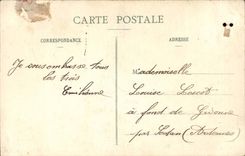 CARTE POSTALE
CORRESPONDANCE
ADRESSE
Je vous embrasse tous
les trois
Emilienne
Mademoiselle
Louise Loucot
à fond de Givonne
par Sedan (Ardennes)